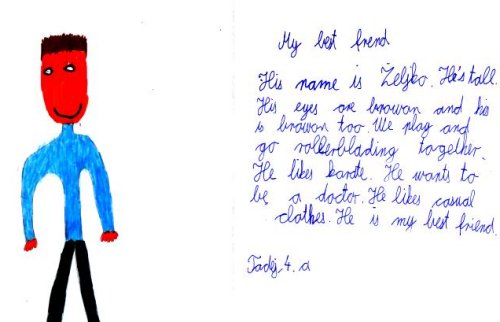 My best frend
His name is Željko. He's tall.
His eyes are browan and his
is browan too. We play and
go rollerblading together.
He likes karate. He wants to
be a doctor. He likes casual
clothes. He is my best friend.
Tadej, 4. a